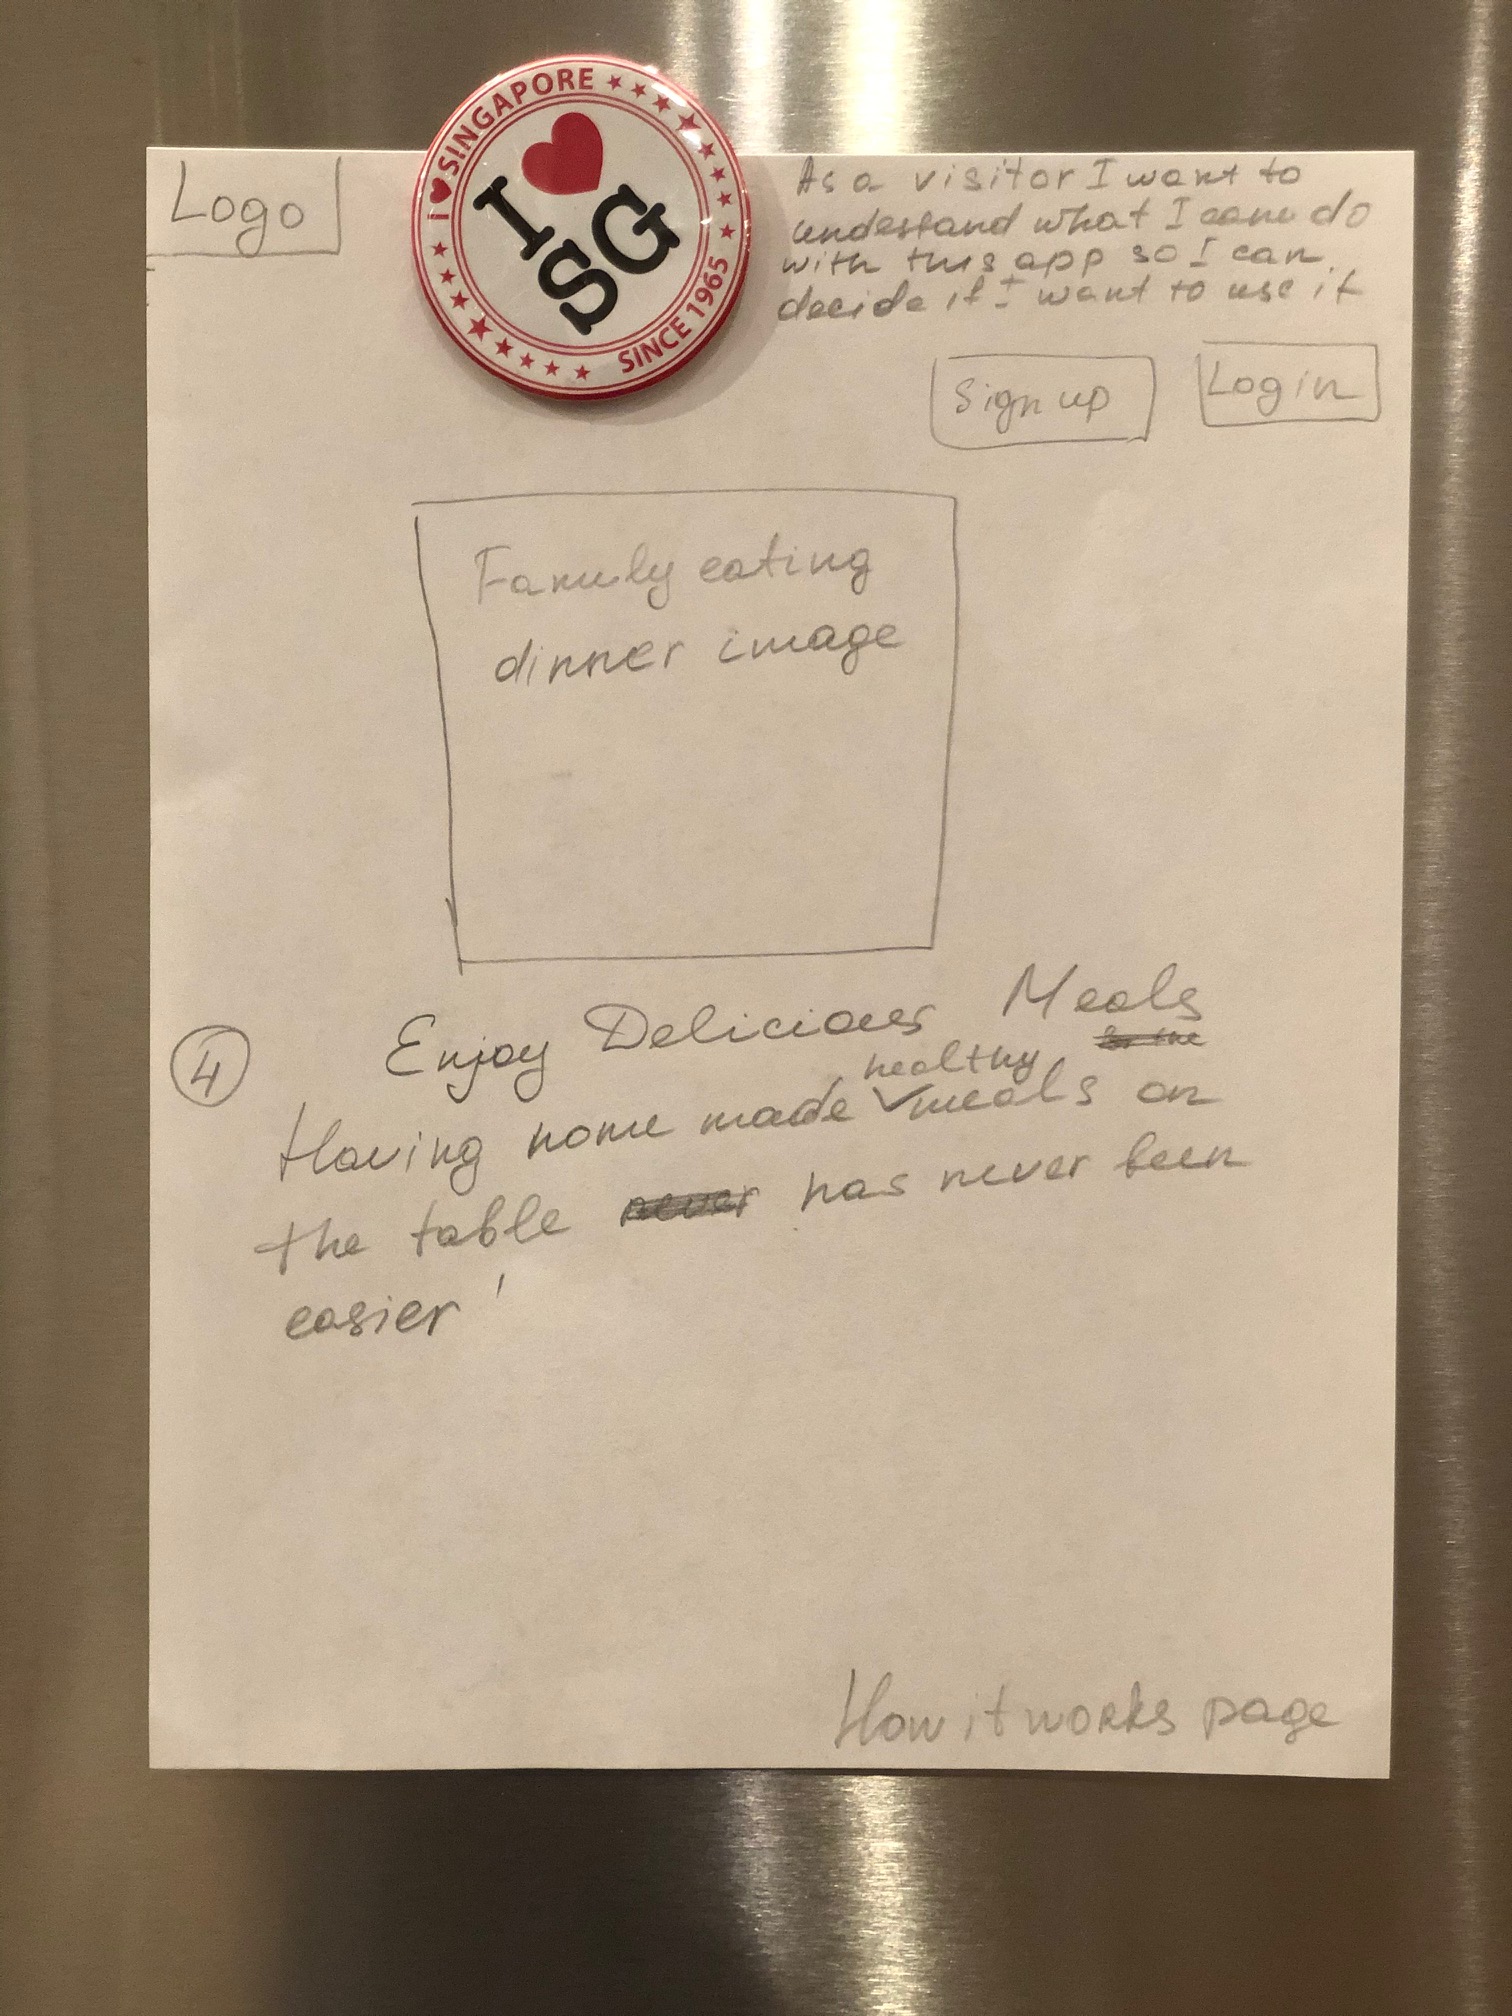 I ♥ SINGAPORE
I ♥
SG
SINCE 1965
Logo
As a visitor I want to
understand what I can do
with this app so I can
decide if I want to use it
Sign up
Log in
Family eating
dinner image
4
Enjoy Delicious Meals
healthy
Having home made meals on
the table never has never been
easier!
How it works page